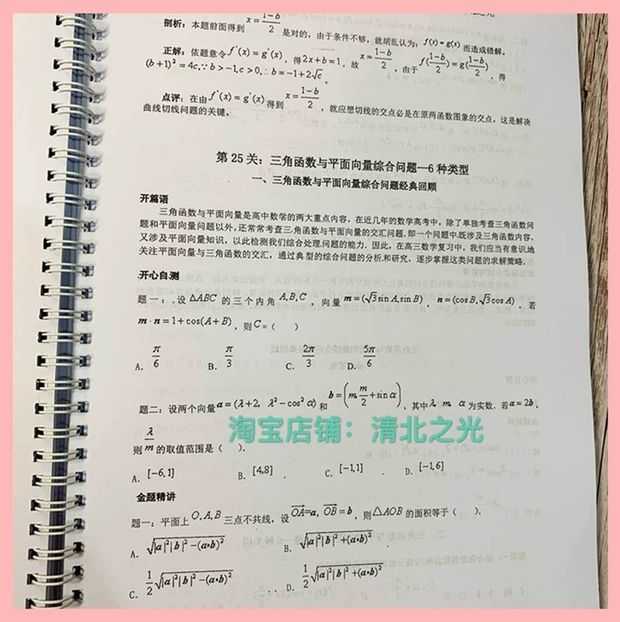 剖析：本题前面得到 x=(1-b)/2 是对的，由于条件不够，就胡乱认为：f(x)=g(x) 而造成错解。
正解：依题意令 f'(x)=g'(x)，得 2x+b=1，故 x=(1-b)/2，由于 f((1-b)/2)=g((1-b)/2)，得
(b+1)²=4c,∵b>-1,c>0,∴b=-1+2√c。
点评：在由 f'(x)=g'(x) 得到 x=(1-b)/2，就应想切线的交点必是在原两函数图象的交点，这是解决
曲线切线问题的关键。
第 25 关：三角函数与平面向量综合问题—6 种类型
一、三角函数与平面向量综合问题经典回顾
开篇语
三角函数与平面向量是高中数学的两大重点内容，在近几年的数学高考中，除了单独考查三角函数问
题和平面向量问题以外，还常常考查三角函数与平面向量的交汇问题，即一个问题中既涉及三角函数内容，
又涉及平面向量知识，以此检测我们综合处理问题的能力，因此，在高三数学复习中，我们应当有意识地
关注平面向量与三角函数的交汇，通过典型的综合问题的分析和研究，逐步掌握这类问题的求解策略．
开心自测
题一：设 △ABC 的三个内角 A,B,C，向量 m=(√3 sin A, sin B)，n=(cos B, √3 cos A)，若
m·n=1+cos(A+B)，则 C=（ ）
A. π/6 B. π/3 C. 2π/3 D. 5π/6
题二：设两个向量 a=(λ+2, λ²-cos²α) 和 b=(m, m/2+sin α)，其中 λ, m, α 为实数．若 a=2b，
淘宝店铺：清北之光
则 λ/m 的取值范围是（ ）．
A. [-6,1] B. [4,8] C. [-1,1] D. [-1,6]
金题精讲
题一：平面上 O,A,B 三点不共线，设 OA=a, OB=b，则 △AOB 的面积等于（ ）．
A. √(|a|²|b|²-(a•b)²) B. √(|a|²|b|²+(a•b)²)
C. 1/2 √(|a|²|b|²-(a•b)²) D. 1/2 √(|a|²|b|²+(a•b)²)